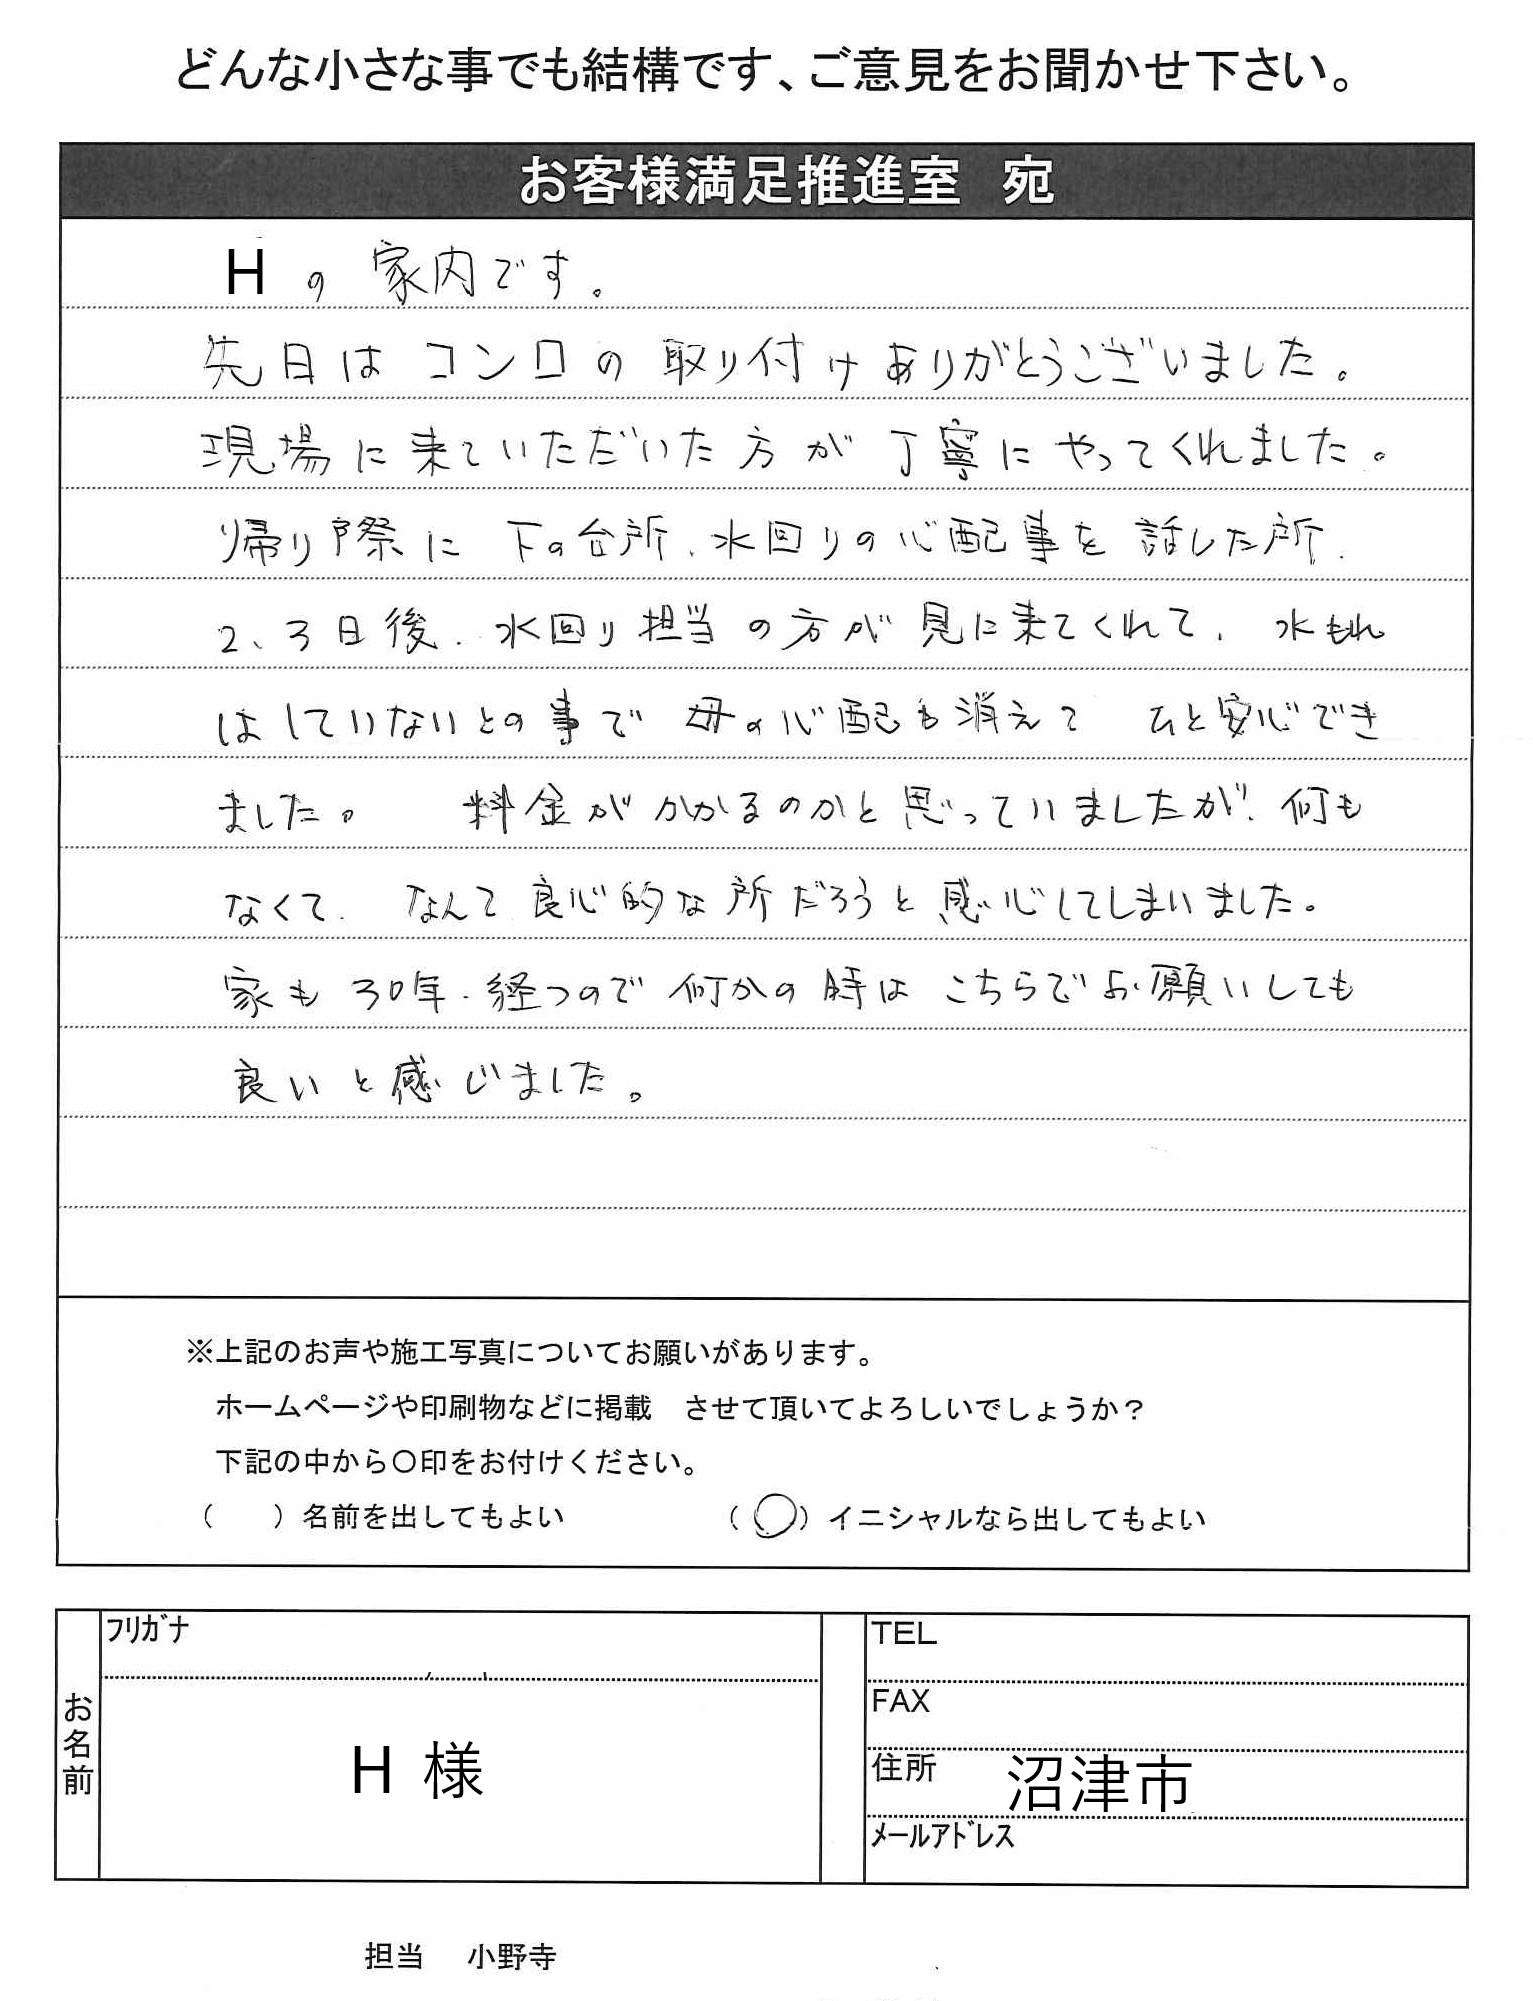 どんな小さな事でも結構です、ご意見をお聞かせ下さい。
お客様満足推進室　宛
Hの家内です。
先日はコンロの取り付けありがとうございました。
現場に来ていただいた方が丁寧にやってくれました。
帰り際に下の台所、水回りの心配事を話した所、
2、3日後、水回り担当の方が見に来てくれて、水もれ
はしていないとの事で 母の心配も消えて ひと安心でき
ました。 料金がかかるのかと思っていましたが、何も
なくて、なんて良心的な所だろうと感心してしまいました。
家も30年、経つので何かの時はこちらでお願いしても
良いと感じました。
※上記のお声や施工写真についてお願いがあります。
ホームページや印刷物などに掲載　させて頂いてよろしいでしょうか？
下記の中から〇印をお付けください。
（　　）名前を出してもよい　（〇）イニシャルなら出してもよい
お名前
フリガナ
H 様
TEL
FAX
住所　沼津市
メールアドレス
担当　小野寺